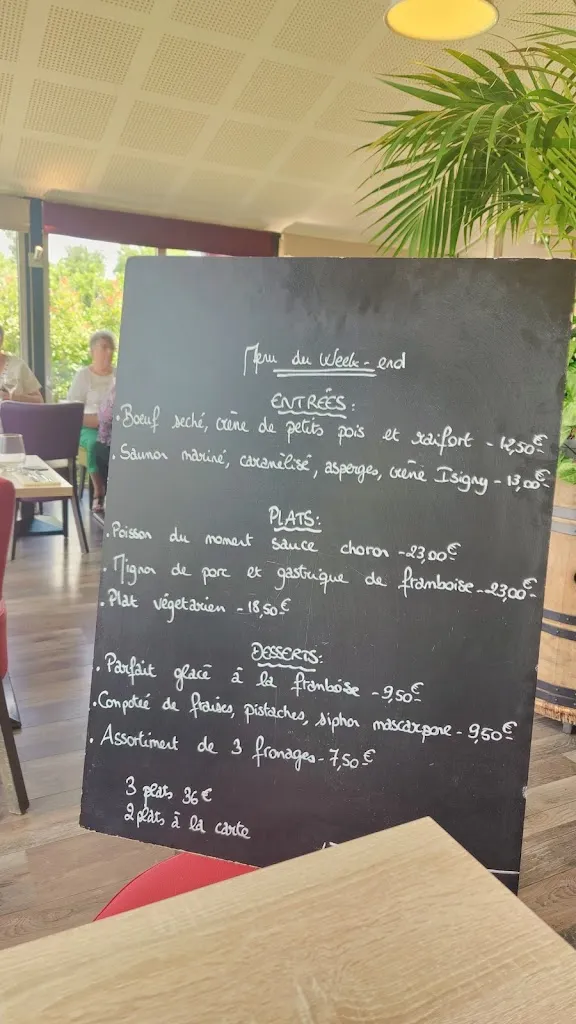 Menu du Week-end
ENTRÉES:
. Boeuf seché, crème de petits pois et raifort - 12,50€
. Saumon mariné, caramélisé, asperges, crème Isigny - 13,00€
PLATS:
. Poisson du moment sauce choron - 23,00€
. Mignon de porc et gastrique de framboise - 23,00€
. Plat végétarien - 18,50€
DESSERTS:
. Parfait glacé à la framboise - 9,50€
. Compotée de fraises, pistaches, siphon mascarpone - 9,50€
. Assortiment de 3 fromages - 7,50€
3 plats 36€
2 plats à la carte